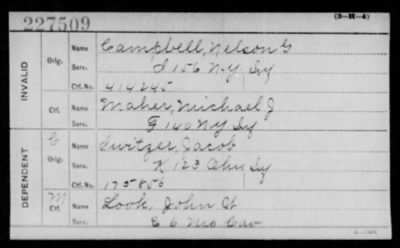 227509
(3-M-4)
INVALID
Orig.
Name Campbell, Nelson G
Serv. I 156 N.Y. Inf
Ctf. No. 414245
Ctf.
Name Maher, Michael J
Serv. F 140 NY Inf
DEPENDENT
C
Orig.
Name Switzer, Jacob
Serv. K 123 Ohio Inf
Ctf. No. 175856
M
Ctf.
Name Look, John H
Serv. E 6 Mo Cav